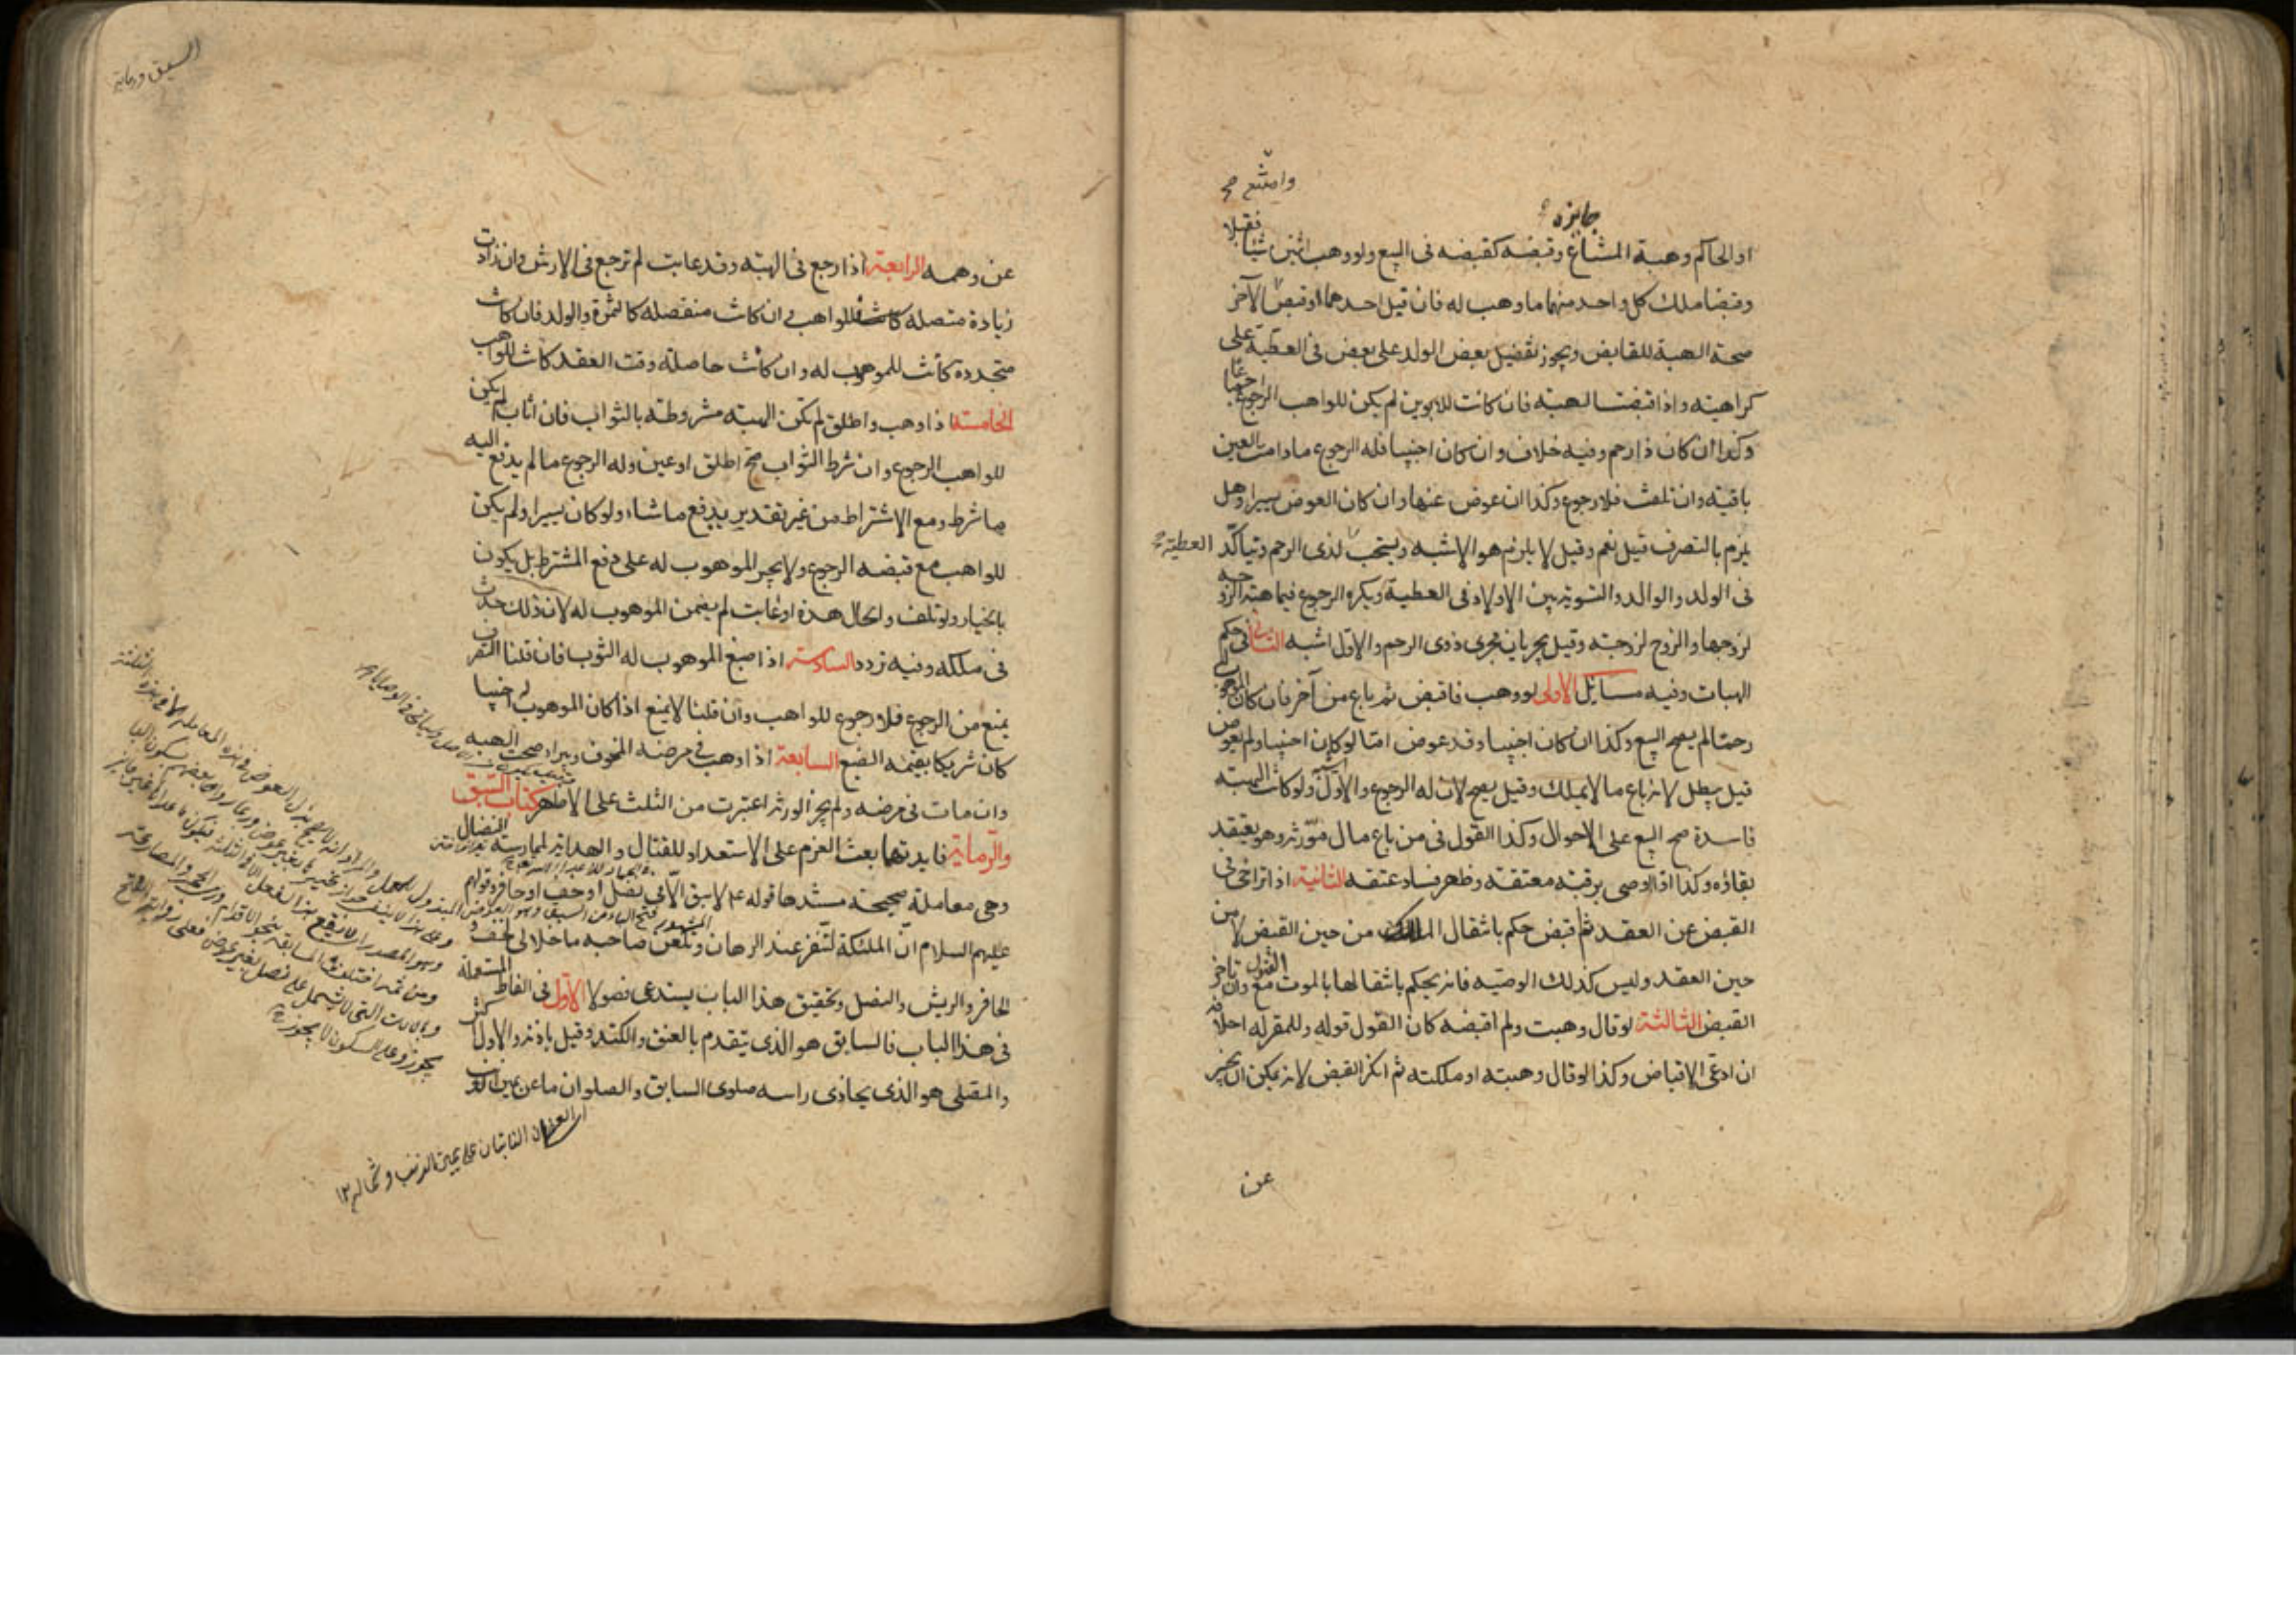 وامتنع صح
جايزه
او الحاكم وهبة المشاع وقبضه كقبضه فى البيع ولو وهب اثنين شيئا فقبلا
وقبضا ملك كل واحد منهما ما وهب له فان قبل احدهما وقبض الآخر
صحة الهبة للقابض ويجوز تفضيل بعض الولد على بعض فى العطية على
كراهيته واذا قبضت الهبة فان كانت للابوين لم يكن للواهب الرجوع اجماعا
وكذا ان كان ذا رحم وفيه خلاف وان كان اجنبيا فله الرجوع ما دامت العين
باقيه وان تلفت فلا رجوع وكذا ان عوض عنها وان كان العوض يسيرا وهل
يلزم بالتصرف قيل نعم وقيل لا يلزم هو الاشبه ويستحب لذى الرحم ويتاكد
العطية صح
فى الولد والوالد والتسوية بين الاولاد فى العطية ويكره الرجوع فيما تهبه الزوجه
لزوجها والزوج لزوجته وقيل يجريان مجرى ذوى الرحم والاول اشبه الثانى فى حكم
الهبات وفيه مسايل الاولى لو وهب فاقبض ثم باع من آخر فان كان الموهوب له
رحما لم يصح البيع وكذا ان كان اجنبيا وقد عوض اما لو كان اجنبيا ولم يعوض
قيل يبطل لانه باع ما لا يملك وقيل يصح لان له الرجوع والاول ولو كانت الهبة
فاسدة صح البيع على الاحوال وكذا القول فى من باع مال مورثه وهو يعتقد
بقاؤه وكذا اذا اوصى برقبة معتقه وظهر فساد عتقه الثانية اذا تراخى
القبض عن العقد ثم قبض حكم بانتقال الملك من حين القبض لا من
حين العقد وليس كذلك الوصيه فانه يحكم بانتقالها بالموت مع القبول وان تاخر
القبض الثالثة لو قال وهبت ولم اقبضه كان القول قوله وللمقر له احلافه
ان ادعى الاقباض وكذا لو قال وهبته او ملكته ثم انكر القبض لانه يمكن ان يخبر
عن
السبق ورمايه
عن وهمه الرابعة اذا رجع فى الهبه وقد عابت لم ترجع فى الارش وان زادت
زيادة متصله كانت للواهب وان كانت منفصله كالثمرة والولد فان كانت
متجددة كانت للموهوب له وان كانت حاصله وقت العقد كانت للواهب
الخامسة اذا وهب واطلق لم تكن الهبه مشروطه بالثواب فان اثاب لم يكن
للواهب الرجوع وان شرط الثواب صح اطلق او عين وله الرجوع ما لم يدفع اليه
ما شرط ومع الاشتراط من غير تقدير يدفع ما شاء ولو كان يسيرا ولم يكن
للواهب مع قبضه الرجوع ولا يجبر الموهوب له على دفع المشترط بل يكون
بالخيار ولو تلفت والحال هذه او عابت لم يضمن الموهوب له لان ذلك حدث
فى ملكه وفيه تردد السادسة اذا صبغ الموهوب له الثوب فان قلنا التصرف
يمنع من الرجوع فلا رجوع للواهب وان قلنا لا يمنع اذا كان الموهوب له اجنبيا
كان شريكا بقيمه الصبغ السابعة اذا وهب فى مرضه المخوف وبرا صحت الهبه
وان مات فى مرضه ولم يجز الورثه اعتبرت من الثلث على الاظهر كتاب السبق
والرماية فايدتها بعث العزم على الاستعداد للقتال والهداية لممارسة النضال
وهى معاملة صحيحة مستندها قوله ع م لا سبق الا فى نصل او خف او حافر وقولهم
عليهم السلام ان الملئكة لتنفر عند الرهان وتلعن صاحبه ما خلا الخف و
الحافر والريش والنصل وتحقيق هذا الباب يستدعى فصولا الاول فى الفاظ المستعملة
فى هذا الباب فالسابق هو الذى يتقدم بالعنق والكتد وقيل باذنه والاول اكثر
والمصلى هو الذى يحاذى راسه صلوى السابق والصلوان ما عن يمين الذنب
العظمان النابتان على يمين الذنب وشماله ١٢